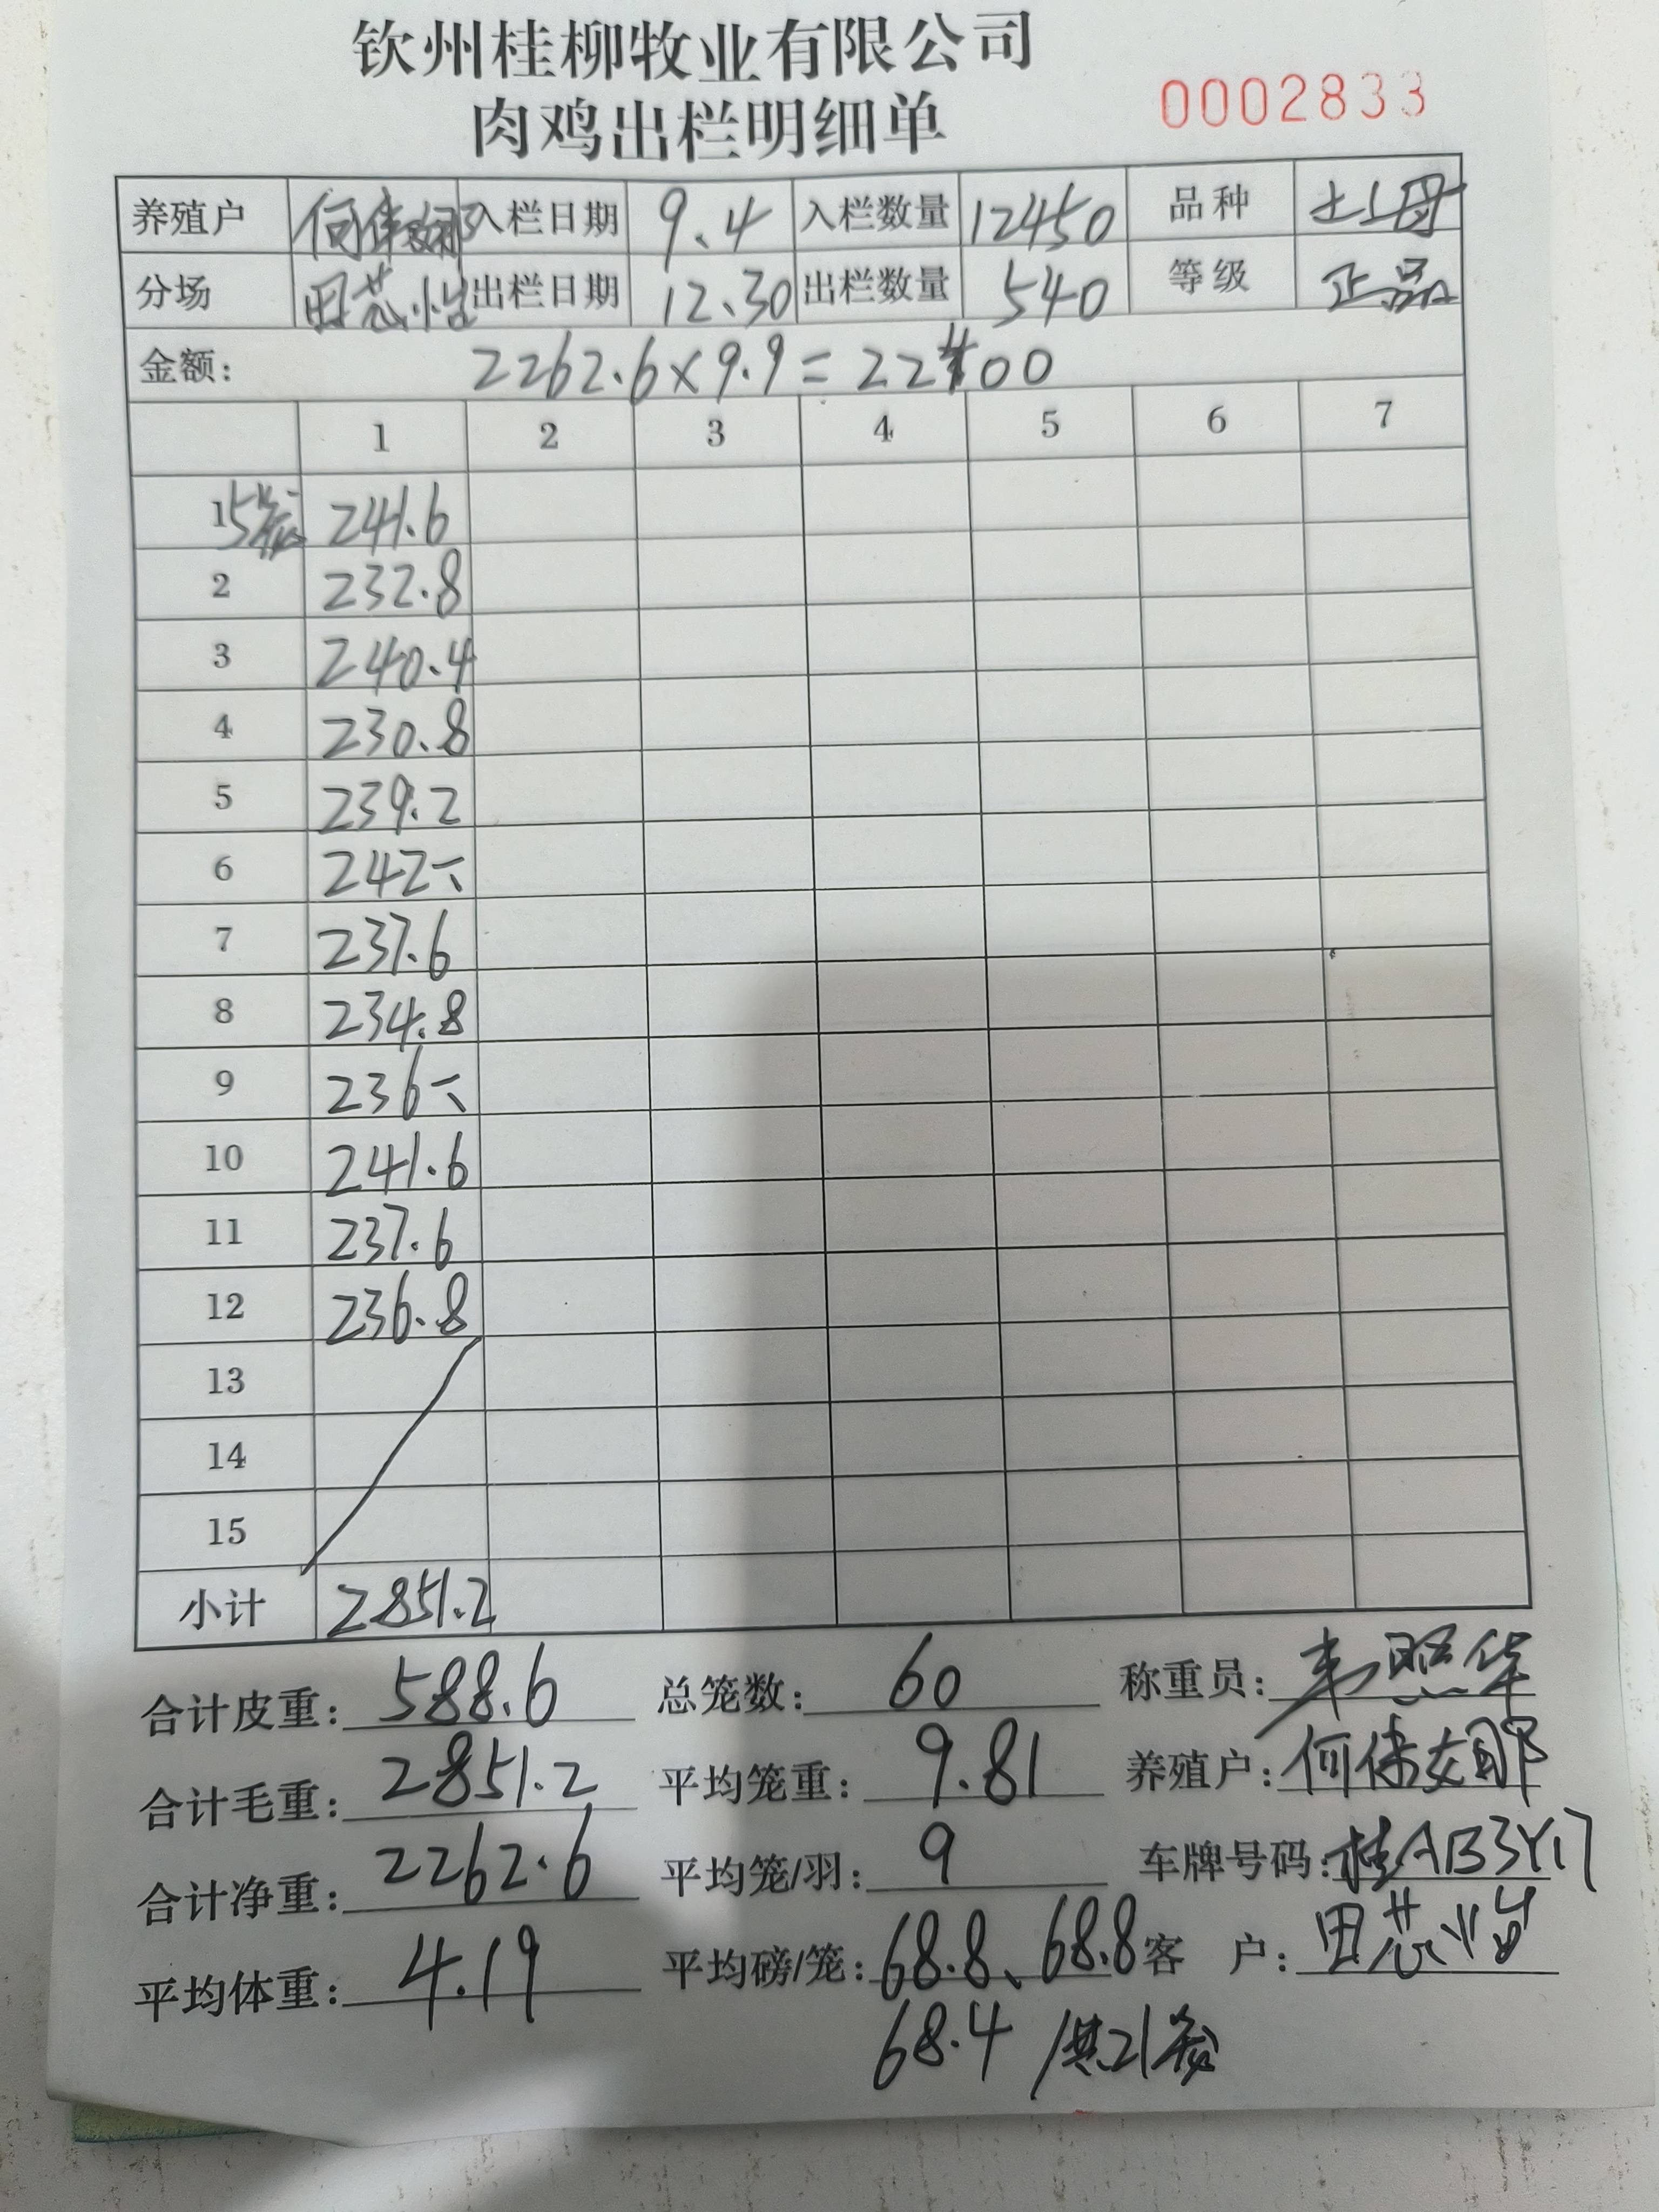 钦州桂柳牧业有限公司
肉鸡出栏明细单
0002833
养殖户 何伟娜 入栏日期 9.4 入栏数量 12450 品种 土上母
分场 田芯怡 出栏日期 12.30 出栏数量 540 等级 正品
金额: 2262.6×9.9=22400
1 2 3 4 5 6 7
1 5笼 241.6
2 232.8
3 240.4
4 230.8
5 239.2
6 242
7 237.6
8 234.8
9 236
10 241.6
11 237.6
12 236.8
13
14
15
小计 2851.2
合计皮重: 588.6 总笼数: 60 称重员: 韦照华
合计毛重: 2851.2 平均笼重: 9.81 养殖户: 何伟娜
合计净重: 2262.6 平均笼/羽: 9 车牌号码: 桂AB3Y17
平均体重: 4.19 平均磅/笼: 68.8、68.8 客 户: 田芯怡
68.4 /共21笼